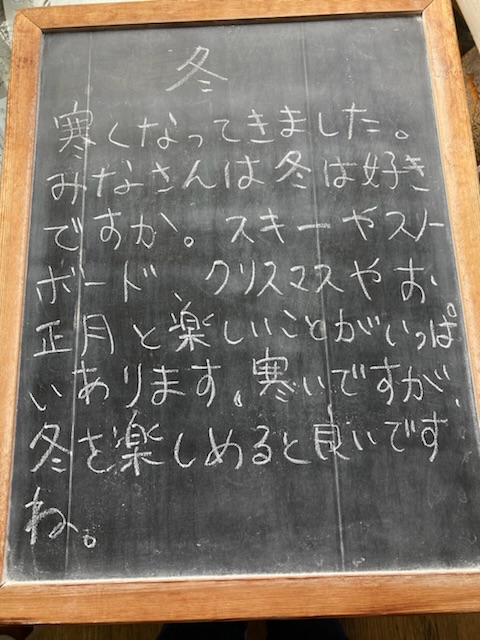 冬
寒くなってきました。
みなさんは冬は好き
ですか。スキーやスノー
ボード、クリスマスやお
正月と楽しいことがいっぱ
いあります。寒いですが、
冬を楽しめると良いです
ね。